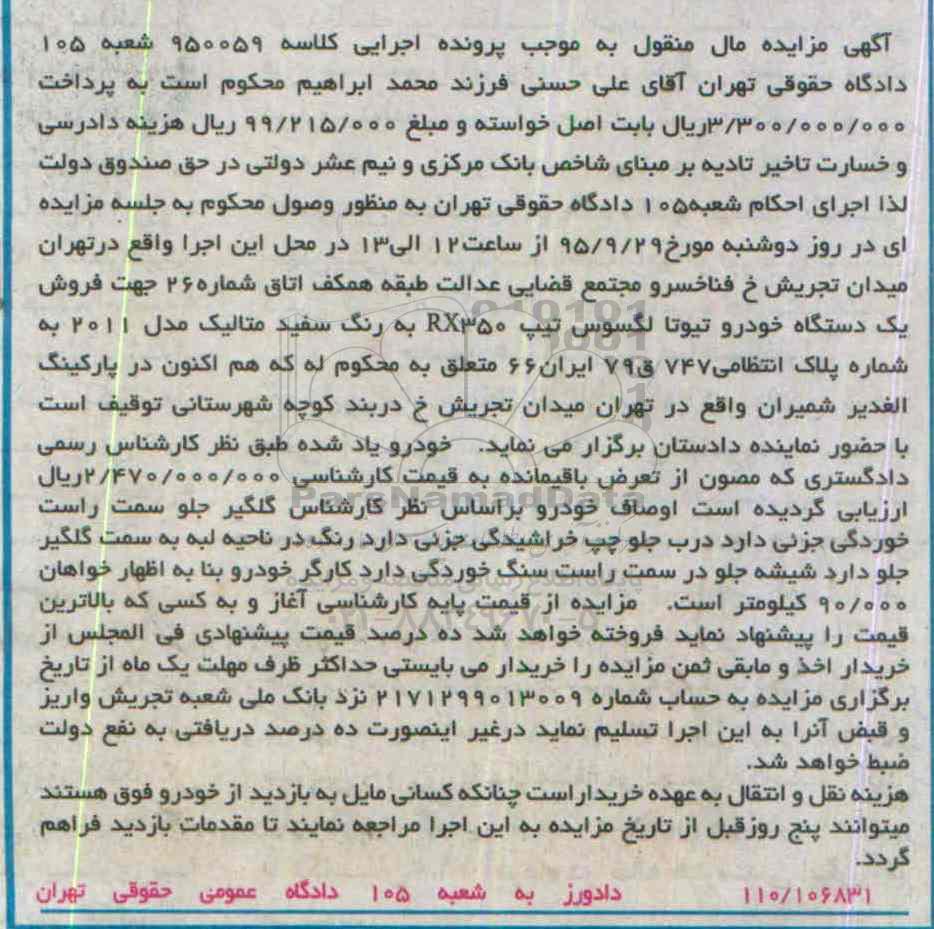 آگهی مزایده مال منقول به موجب پرونده اجرایی کلاسه ۹۵۰۰۵۹ شعبه ۱۰۵
دادگاه حقوقی تهران آقای علی حسنی فرزند محمد ابراهیم محکوم است به پرداخت
۳/۳۰۰/۰۰۰/۰۰۰ریال بابت اصل خواسته و مبلغ ۹۹/۲۱۵/۰۰۰ ریال هزینه دادرسی
و خسارت تاخیر تادیه بر مبنای شاخص بانک مرکزی و نیم عشر دولتی در حق صندوق دولت
لذا اجرای احکام شعبه۱۰۵ دادگاه حقوقی تهران به منظور وصول محکوم به جلسه مزایده
ای در روز دوشنبه مورخ۹۵/۹/۲۹ از ساعت۱۲ الی۱۳ در محل این اجرا واقع درتهران
میدان تجریش خ فناخسرو مجتمع قضایی عدالت طبقه همکف اتاق شماره۲۶ جهت فروش
یک دستگاه خودرو تیوتا لگسوس تیپ RX۳۵۰ به رنگ سفید متالیک مدل ۲۰۱۱ به
شماره پلاک انتظامی۷۴۷ ق۷۹ ایران۶۶ متعلق به محکوم له که هم اکنون در پارکینگ
الغدیر شمیران واقع در تهران میدان تجریش خ دربند کوچه شهرستانی توقیف است
با حضور نماینده دادستان برگزار می نماید. خودرو یاد شده طبق نظر کارشناس رسمی
دادگستری که مصون از تعرض باقیمانده به قیمت کارشناسی ۲/۴۷۰/۰۰۰/۰۰۰ریال
ارزیابی گردیده است اوصاف خودرو براساس نظر کارشناس گلگیر جلو سمت راست
خوردگی جزئی دارد درب جلو چپ خراشیدگی جزئی دارد رنگ در ناحیه لبه به سمت گلگیر
جلو دارد شیشه جلو در سمت راست سنگ خوردگی دارد کارگر خودرو بنا به اظهار خواهان
۹۰/۰۰۰ کیلومتر است. مزایده از قیمت پایه کارشناسی آغاز و به کسی که بالاترین
قیمت را پیشنهاد نماید فروخته خواهد شد ده درصد قیمت پیشنهادی فی المجلس از
خریدار اخذ و مابقی ثمن مزایده را خریدار می بایستی حداکثر ظرف مهلت یک ماه از تاریخ
برگزاری مزایده به حساب شماره ۲۱۷۱۲۹۹۰۱۳۰۰۹ نزد بانک ملی شعبه تجریش واریز
و قبض آنرا به این اجرا تسلیم نماید درغیر اینصورت ده درصد دریافتی به نفع دولت
ضبط خواهد شد.
هزینه نقل و انتقال به عهده خریدار است چنانکه کسانی مایل به بازدید از خودرو فوق هستند
میتوانند پنج روزقبل از تاریخ مزایده به این اجرا مراجعه نمایند تا مقدمات بازدید فراهم
گردد.
۱۱۰/۱۰۶۸۳۱ دادورز به شعبه ۱۰۵ دادگاه عمومی حقوقی تهران
ParsNamadData